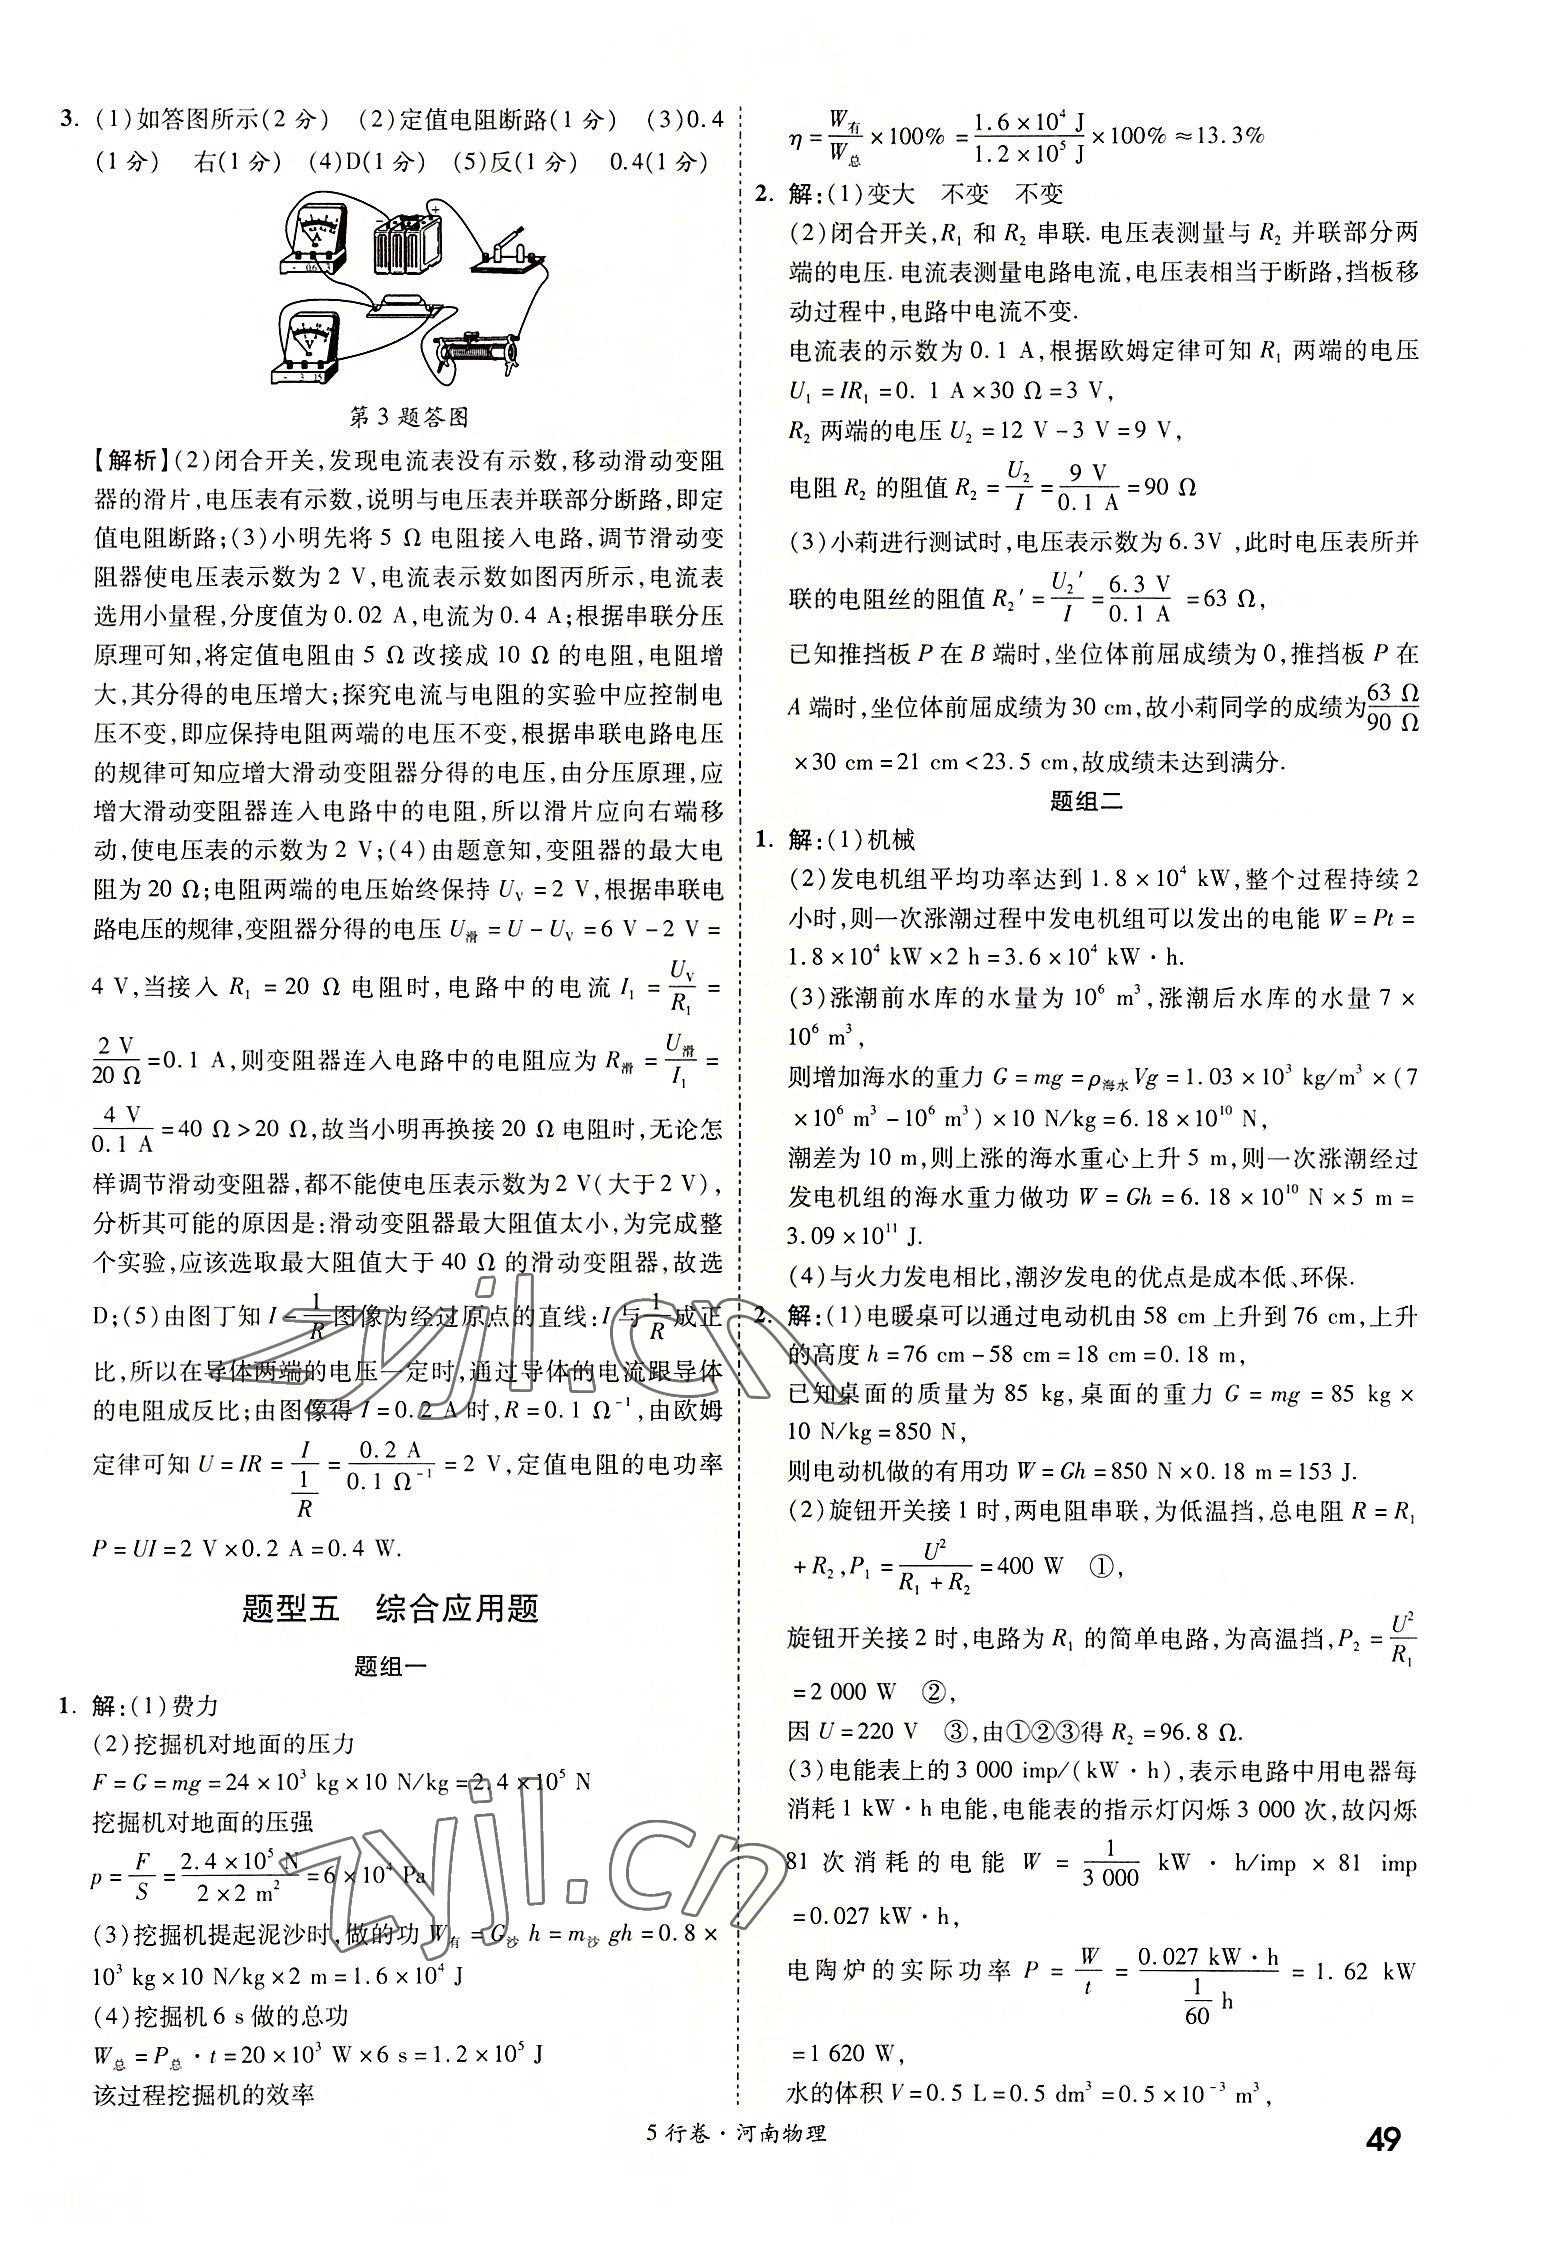 3. (1)如答图所示(2 分) (2)定值电阻断路(1 分) (3)0.4
(1 分) 右(1 分) (4)D(1 分) (5)反(1 分) 0.4(1 分)
第 3 题答图
【解析】(2)闭合开关,发现电流表没有示数,移动滑动变阻
器的滑片,电压表有示数,说明与电压表并联部分断路,即定
值电阻断路;(3)小明先将 5 Ω 电阻接入电路,调节滑动变
阻器使电压表示数为 2 V,电流表示数如图丙所示,电流表
选用小量程,分度值为 0.02 A,电流为 0.4 A;根据串联分压
原理可知,将定值电阻由 5 Ω 改接成 10 Ω 的电阻,电阻增
大,其分得的电压增大;探究电流与电阻的实验中应控制电
压不变,即应保持电阻两端的电压不变,根据串联电路电压
的规律可知应增大滑动变阻器分得的电压,由分压原理,应
增大滑动变阻器连入电路中的电阻,所以滑片应向右端移
动,使电压表的示数为 2 V;(4)由题意知,变阻器的最大电
阻为 20 Ω;电阻两端的电压始终保持 U_V = 2 V,根据串联电
路电压的规律,变阻器分得的电压 U_滑 = U - U_V = 6 V - 2 V =
4 V,当接入 R₁ = 20 Ω 电阻时,电路中的电流 I₁ = U_V/R₁ =
2 V/20 Ω = 0.1 A,则变阻器连入电路中的电阻应为 R_滑 = U_滑/I₁ =
4 V/0.1 A = 40 Ω > 20 Ω,故当小明再换接 20 Ω 电阻时,无论怎
样调节滑动变阻器,都不能使电压表示数为 2 V(大于 2 V),
分析其可能的原因是:滑动变阻器最大阻值太小,为完成整
个实验,应该选取最大阻值大于 40 Ω 的滑动变阻器,故选
D;(5)由图丁知 I - 1/R 图像为经过原点的直线:I 与 1/R 成正
比,所以在导体两端的电压一定时,通过导体的电流跟导体
的电阻成反比;由图像得 I = 0.2 A 时,R = 0.1 Ω⁻¹,由欧姆
定律可知 U = IR = I/(1/R) = 0.2 A/0.1 Ω⁻¹ = 2 V,定值电阻的电功率
P = UI = 2 V × 0.2 A = 0.4 W.
题型五 综合应用题
题组一
1. 解:(1)费力
(2)挖掘机对地面的压力
F = G = mg = 24 × 10³ kg × 10 N/kg = 2.4 × 10⁵ N
挖掘机对地面的压强
p = F/S = 2.4 × 10⁵ N/2 × 2 m² = 6 × 10⁴ Pa
(3)挖掘机提起泥沙时,做的功 W_有 = G_沙 h = m_沙 gh = 0.8 ×
10³ kg × 10 N/kg × 2 m = 1.6 × 10⁴ J
(4)挖掘机 6 s 做的总功
W_总 = P_总 · t = 20 × 10³ W × 6 s = 1.2 × 10⁵ J
该过程挖掘机的效率
η = W_有/W_总 × 100% = 1.6 × 10⁴ J/1.2 × 10⁵ J × 100% ≈ 13.3%
2. 解:(1)变大 不变 不变
(2)闭合开关,R₁ 和 R₂ 串联. 电压表测量与 R₂ 并联部分两
端的电压. 电流表测量电路电流,电压表相当于断路,挡板移
动过程中,电路中电流不变.
电流表的示数为 0.1 A,根据欧姆定律可知 R₁ 两端的电压
U₁ = IR₁ = 0.1 A × 30 Ω = 3 V,
R₂ 两端的电压 U₂ = 12 V - 3 V = 9 V,
电阻 R₂ 的阻值 R₂ = U₂/I = 9 V/0.1 A = 90 Ω
(3)小莉进行测试时,电压表示数为 6.3V ,此时电压表所并
联的电阻丝的阻值 R₂′ = U₂′/I = 6.3 V/0.1 A = 63 Ω,
已知推挡板 P 在 B 端时,坐位体前屈成绩为 0,推挡板 P 在
A 端时,坐位体前屈成绩为 30 cm,故小莉同学的成绩为 63 Ω/90 Ω
× 30 cm = 21 cm < 23.5 cm,故成绩未达到满分.
题组二
1. 解:(1)机械
(2)发电机组平均功率达到 1.8 × 10⁴ kW,整个过程持续 2
小时,则一次涨潮过程中发电机组可以发出的电能 W = Pt =
1.8 × 10⁴ kW × 2 h = 3.6 × 10⁴ kW · h.
(3)涨潮前水库的水量为 10⁶ m³,涨潮后水库的水量 7 ×
10⁶ m³,
则增加海水的重力 G = mg = ρ_海水 Vg = 1.03 × 10³ kg/m³ × (7
× 10⁶ m³ - 10⁶ m³) × 10 N/kg = 6.18 × 10¹⁰ N,
潮差为 10 m,则上涨的海水重心上升 5 m,则一次涨潮经过
发电机组的海水重力做功 W = Gh = 6.18 × 10¹⁰ N × 5 m =
3.09 × 10¹¹ J.
(4)与火力发电相比,潮汐发电的优点是成本低、环保.
2. 解:(1)电暖桌可以通过电动机由 58 cm 上升到 76 cm,上升
的高度 h = 76 cm - 58 cm = 18 cm = 0.18 m,
已知桌面的质量为 85 kg,桌面的重力 G = mg = 85 kg ×
10 N/kg = 850 N,
则电动机做的有用功 W = Gh = 850 N × 0.18 m = 153 J.
(2)旋钮开关接 1 时,两电阻串联,为低温挡,总电阻 R = R₁
+ R₂,P₁ = U²/(R₁ + R₂) = 400 W ①,
旋钮开关接 2 时,电路为 R₁ 的简单电路,为高温挡,P₂ = U²/R₁
= 2 000 W ②,
因 U = 220 V ③,由①②③得 R₂ = 96.8 Ω.
(3)电能表上的 3 000 imp/(kW · h),表示电路中用电器每
消耗 1 kW · h 电能,电能表的指示灯闪烁 3 000 次,故闪烁
81 次消耗的电能 W = 1/3 000 kW · h/imp × 81 imp
= 0.027 kW · h,
电陶炉的实际功率 P = W/t = 0.027 kW · h/(1/60 h) = 1.62 kW
= 1 620 W,
水的体积 V = 0.5 L = 0.5 dm³ = 0.5 × 10⁻³ m³,
5 行卷 · 河南物理
49
zyjl.cn
zyjl.cn